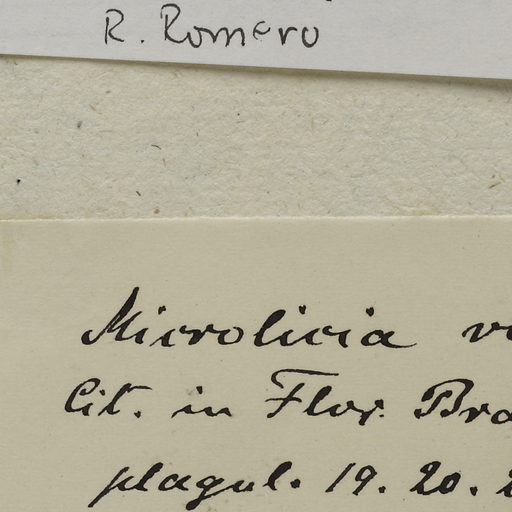 R. Romero
Microlicia
Cit. in Flor. Bra
plagul. 19. 20.